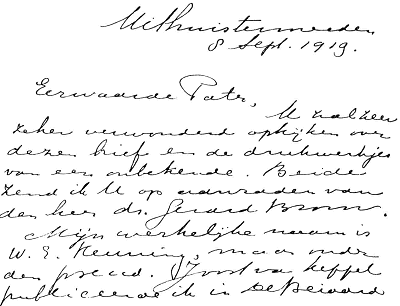 Uithuistermeeden
8 Sept. 1919.
Eerwaarde Pater,
U zal zeer
zeker verwonderd opkijken over
dezen brief en de drukwerkjes
van een onbekende. Beide
zend ik U op aanraden van
den heer ds. Gerard Brom.
Mijn werkelijke naam is
W. E. Keuning, maar onder
den pseud. Joost van Keppel
publiceerde ik in de Beiaard